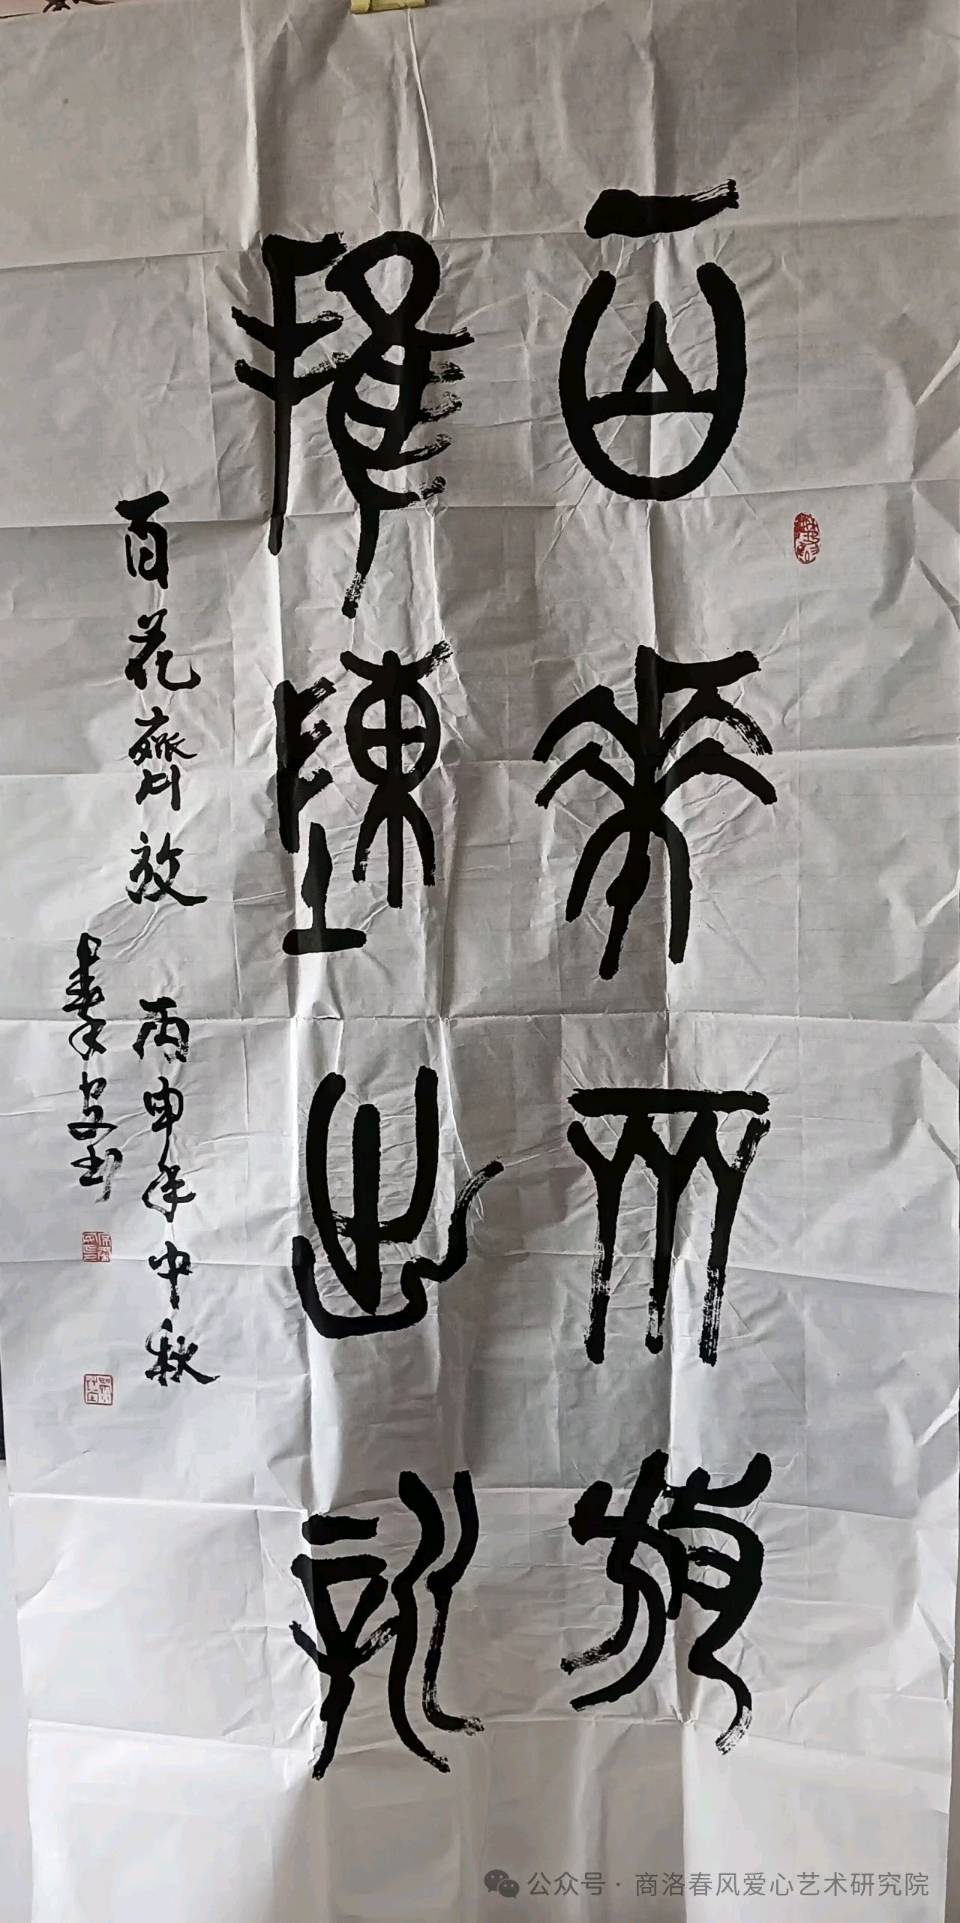 百花齊放
推陳出新
百花齊放 丙申年中秋
公众号·商洛春风爱心艺术研究院